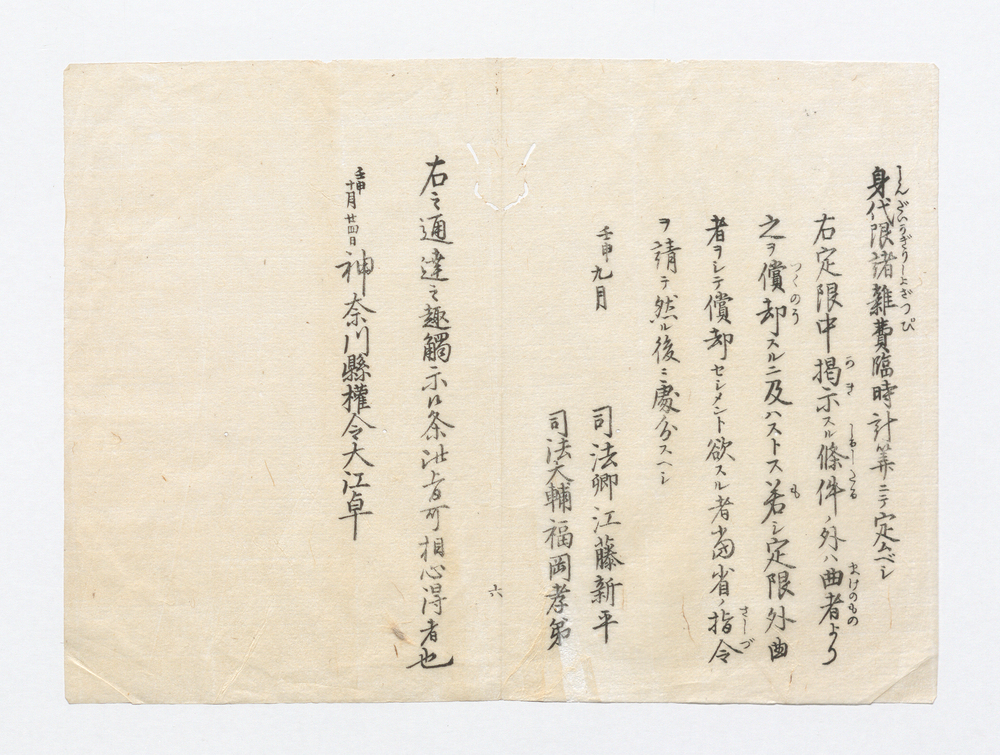 身代限諸雜費臨時計筭ニテ定ムベシ
しんだいかぎりしよざつぴ
右定限中揭示スル條件ノ外ハ曲者より
かき
しるしたる
まけのもの
之ヲ償却スルニ及ハストス若シ定限外曲
つくのう
も
者ヲシテ償却セシメント欲スル者當省ノ指令
さしづ
ヲ請テ然ル後ニ處分スヘシ
壬申九月
司法卿江藤新平
司法大輔福岡孝弟
六
右之通達之趣觸示候条此旨可相心得者也
壬申十月廿四日 神奈川縣權令大江卓